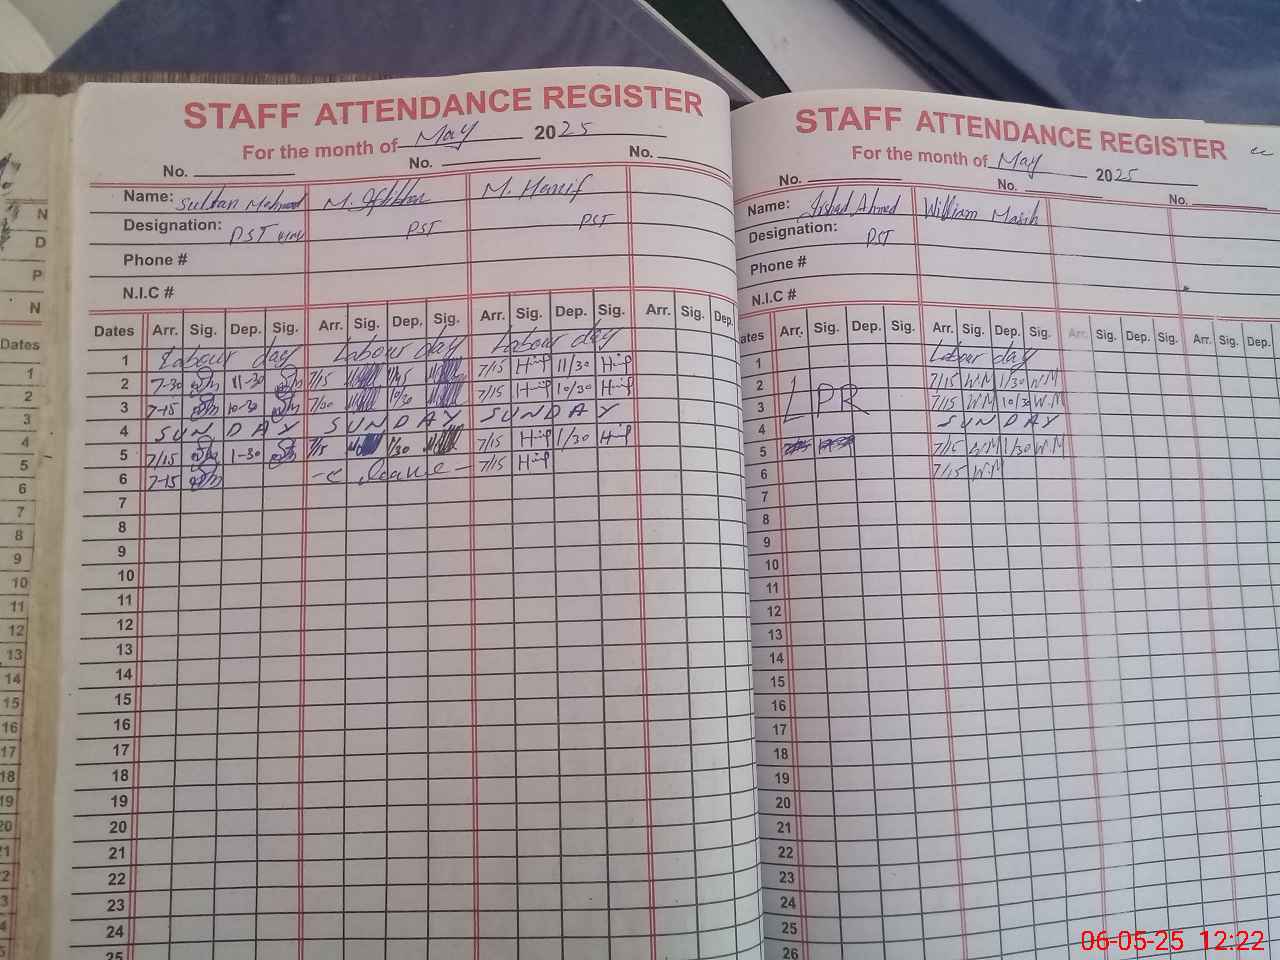 STAFF ATTENDANCE REGISTER
For the month of May 2025
No. No. No.
Name: Sultan Mehmood M. Iftikhar M. Hanif
Designation: PST PST PST
Phone #
N.I.C #
Dates Arr. Sig. Dep. Sig. Arr. Sig. Dep. Sig. Arr. Sig. Dep. Sig. Arr. Sig. Dep.
1 Labour day Labour day Labour day
2 7-30 11-30 7/15 7/15 11/30
3 7-15 10-30 7/30 10/30 7/15 10/30
4 SUNDAY SUNDAY SUNDAY
5 7/15 1-30 1/30 7/15 1/30
6 7-15 leave 7/15
7
8
9
10
11
12
13
14
15
16
17
18
19
20
21
22
23
24
25
STAFF ATTENDANCE REGISTER
For the month of May 2025
No. No. No.
Name: Irshad Ahmed William Masih
Designation: PST
Phone #
N.I.C #
ates Arr. Sig. Dep. Sig. Arr. Sig. Dep. Sig. Arr. Sig. Dep. Sig. Arr. Sig. Dep.
1 Labour day
2 LPR 7/15 WM 1/30 WM
3 7/15 W.M 10/30 W.M
4 SUNDAY
5 7/15 WM 1/30 WM
6 7/15 W.M
7
8
9
10
11
12
13
14
15
16
17
18
19
20
21
22
23
24
25
26
N
D
P
N
Dates
1
2
3
4
5
6
7
8
9
10
11
12
13
14
15
16
17
18
19
20
06-05-25 12:22